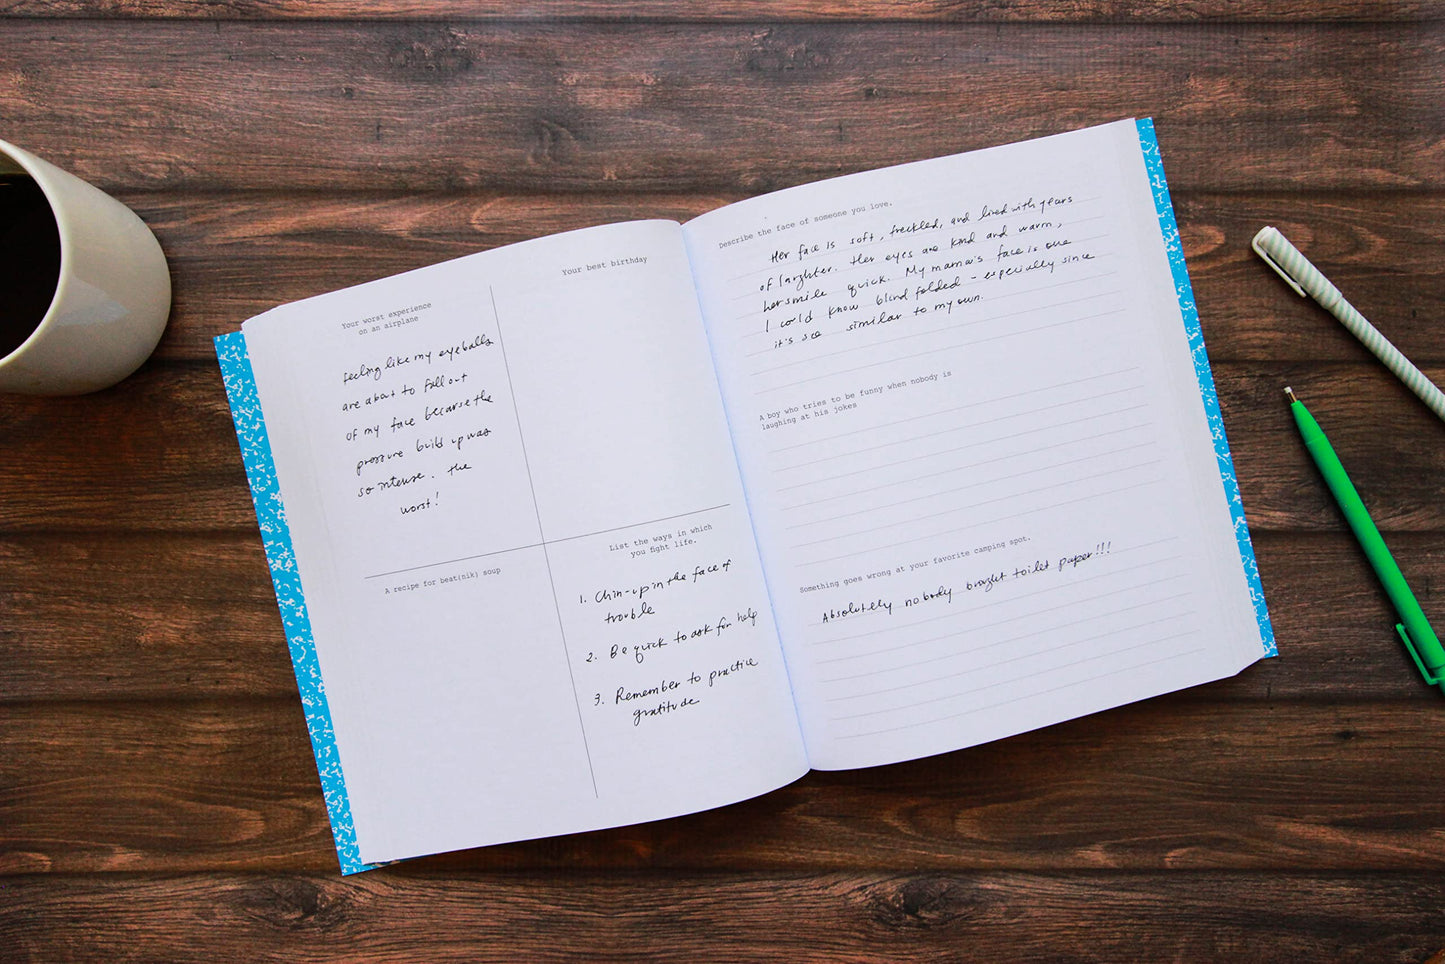 Your worst experience
on an airplane
feeling like my eyeballs
are about to fall out
of my face because the
pressure build up was
so intense. the
worst!
Your best birthday
A recipe for beat(nik) soup
List the ways in which
you fight life.
1. Chin-up in the face of
trouble
2. Be quick to ask for help
3. Remember to practice
gratitude
Describe the face of someone you love.
Her face is soft, freckled, and lined with years
of laughter. Her eyes are kind and warm,
her smile quick. My mama's face is one
I could know blind folded - especially since
it's so similar to my own.
A boy who tries to be funny when nobody is
laughing at his jokes
Something goes wrong at your favorite camping spot.
Absolutely nobody brought toilet paper!!!